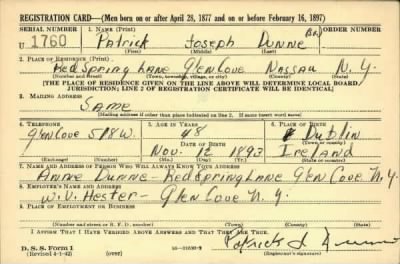 REGISTRATION CARD—(Men born on or after April 28, 1877 and on or before February 16, 1897)
SERIAL NUMBER 1. NAME (Print) ORDER NUMBER
U 1760 Patrick Joseph Dunne
(First) (Middle) (Last)
2. PLACE OF RESIDENCE (Print)
Red Spring Lane Glen Cove Nassau N.Y.
(Number and street) (Town, township, village, or city) (County) (State)
[THE PLACE OF RESIDENCE GIVEN ON THE LINE ABOVE WILL DETERMINE LOCAL BOARD
JURISDICTION; LINE 2 OF REGISTRATION CERTIFICATE WILL BE IDENTICAL]
3. MAILING ADDRESS
Same
[Mailing address if other than place indicated on line 2. If same insert word same]
4. TELEPHONE 5. AGE IN YEARS 6. PLACE OF BIRTH
Glen Cove 518W. 48 Dublin
DATE OF BIRTH (Town or county)
Nov. 12 1893 Ireland
(Exchange) (Number) (Mo.) (Day) (Yr.) (State or country)
7. NAME AND ADDRESS OF PERSON WHO WILL ALWAYS KNOW YOUR ADDRESS
Anne Dunne - Red Spring Lane Glen Cove N.Y.
8. EMPLOYER'S NAME AND ADDRESS
W. V. Hester - Glen Cove N.Y.
9. PLACE OF EMPLOYMENT OR BUSINESS
(Number and street or R. F. D. number) (Town) (County) (State)
I AFFIRM THAT I HAVE VERIFIED ABOVE ANSWERS AND THAT THEY ARE TRUE.
D. S. S. Form 1 Patrick J. Dunne
(Revised 4-1-42) (over) (Registrant's signature)